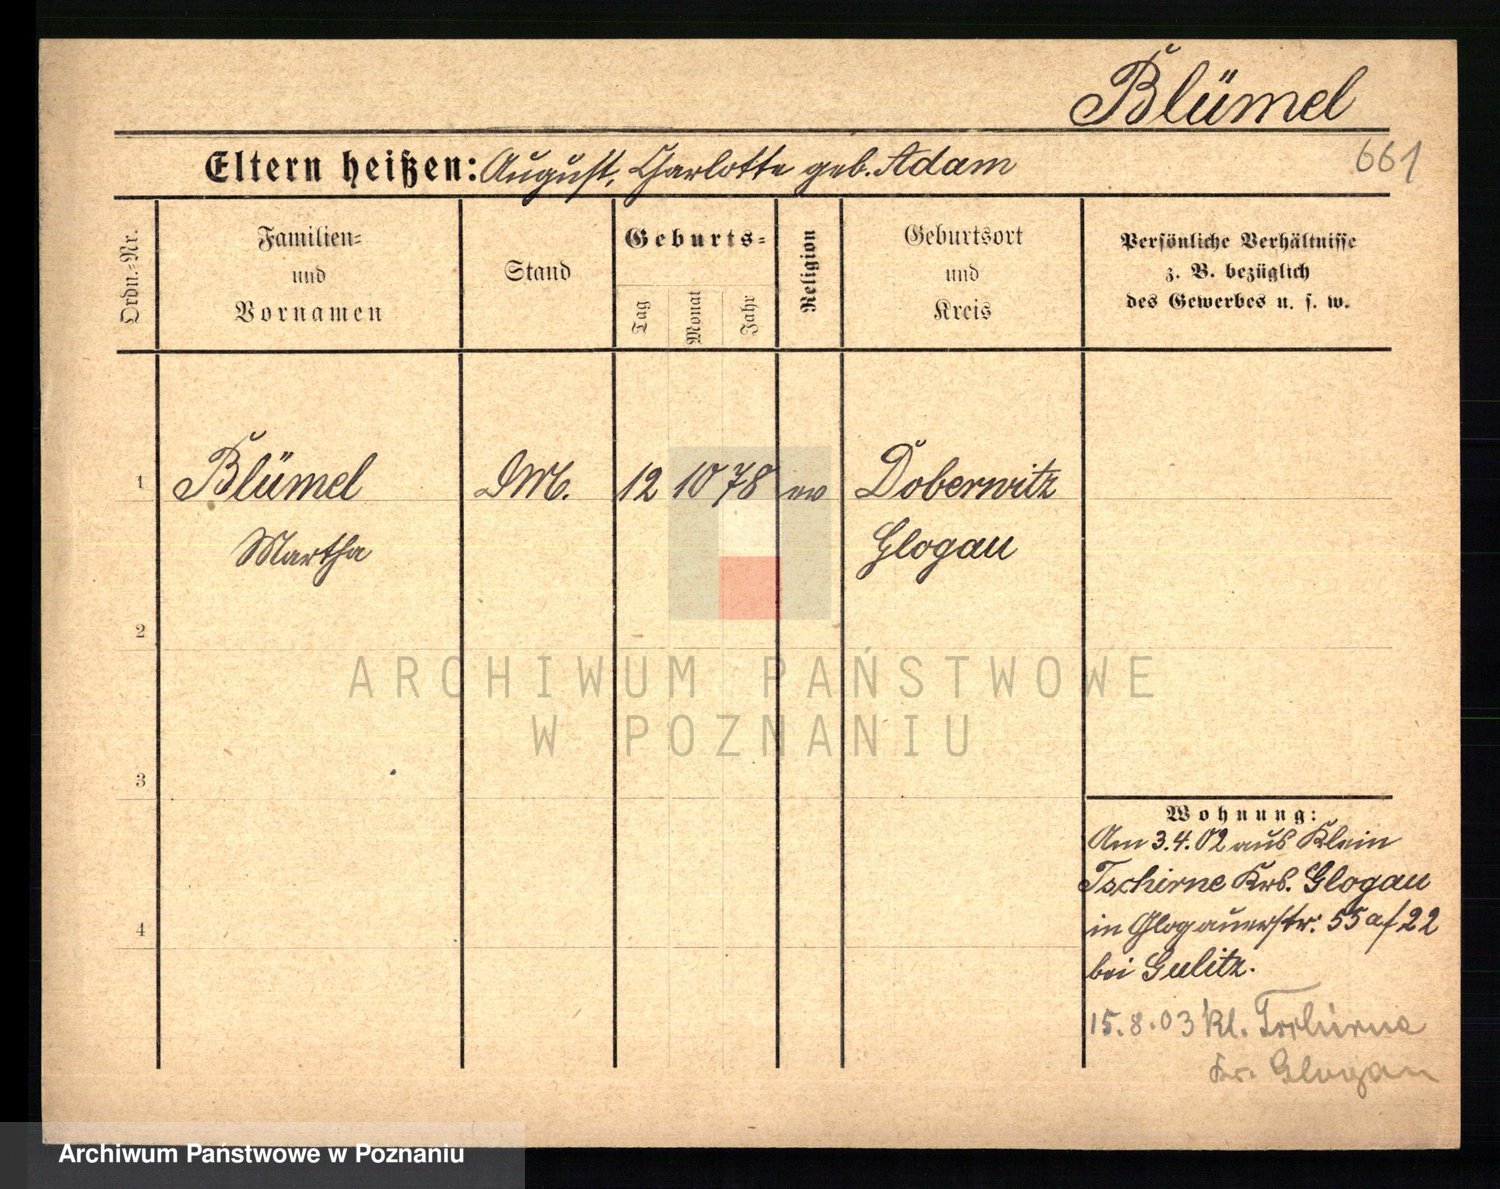 Blümel
Eltern heißen: August, Charlotte geb. Adam
661
Ordn.-Nr.
Familien-
und
Vornamen
Stand
Geburts-
Tag
Monat
Jahr
Religion
Geburtsort
und
Kreis
Persönliche Verhältnisse
z. B. bezüglich
des Gewerbes u. s. w.
1 Blümel DM. 12 10 78 ev Doberwitz
Martha Glogau
2
3
4
ARCHIWUM PAŃSTWOWE
W POZNANIU
Wohnung:
Am 3.4.02 aus Klein
Tschirne Krs. Glogau
in Glogauerstr. 55a/22
bei Gulitz.
15.8.03 Kl. Tschirne
Kr. Glogau
Archiwum Państwowe w Poznaniu